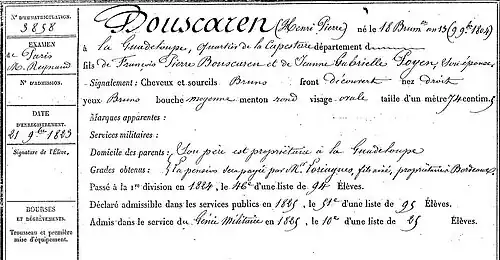 N° D'IMMATRICULATION.
3858
EXAMEN
de Paris
M. Reynaud
N° D'ADMISSION.
DATE
D'ENREGISTREMENT.
21 9bre 1823
Signature de l'Élève.
BOURSES
ET
DÉGRÈVEMENTS.
Trousseau et première
mise d'équipement.
Bouscaren (Henri Pierre) né le 18 Brum re an 13 (9 9bre 1804)
à la Guadeloupe, quartier de la Capesterre département d
fils de François Pierre Bouscaren et de Jeanne Gabrielle Loyen, son épouse
Signalement : Cheveux et sourcils Bruno front découvert nez droit
yeux Bruno bouche moyenne menton rond visage ovale taille d'un mètre 74 centim. s
Marques apparentes :
Services militaires :
Domicile des parents : Son père est propriétaire à la Guadeloupe
Grades obtenus : la pension sera payée par Mr fils aîné, propriétaire à Bordeaux
Passé à la 1re division en 1824, le 46e d'une liste de 94 Élèves.
Déclaré admissible dans les services publics en 1825, le 51e d'une liste de 95 Élèves.
Admis dans le service du Génie Militaire en 1825, le 10e d'une liste de 25 Élèves.